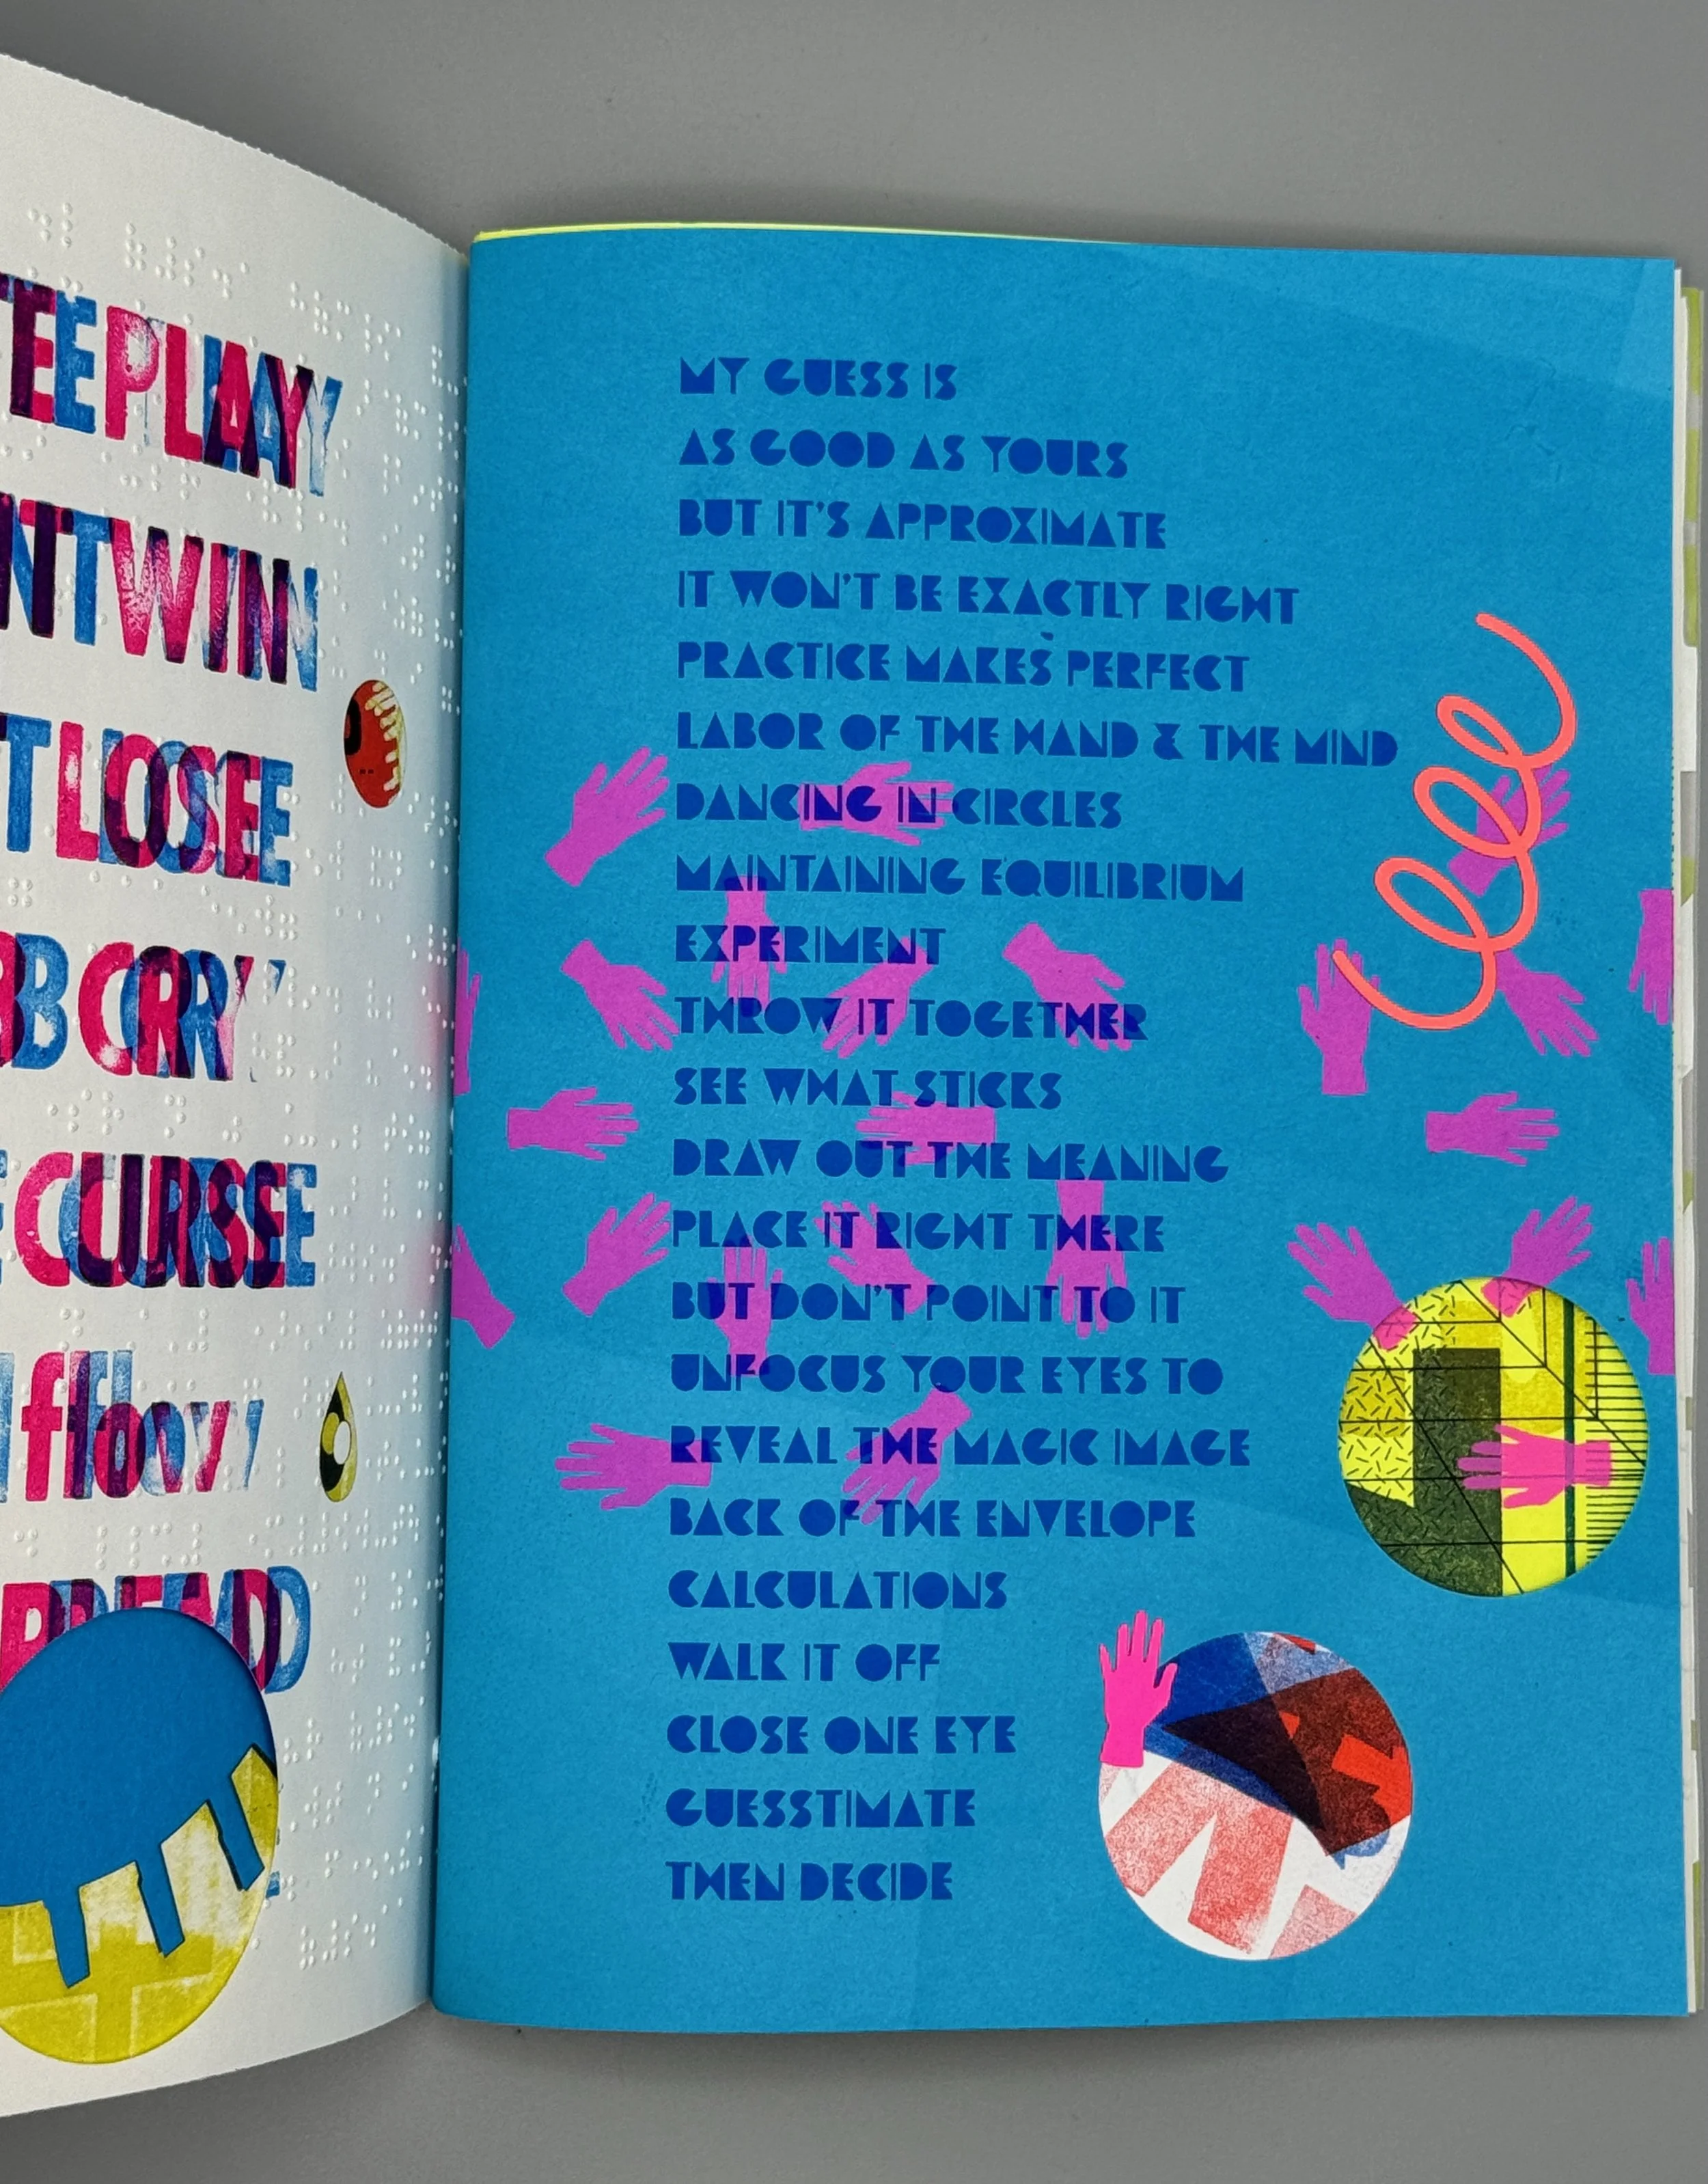 PLAY
WIN
LOSE
CRY
CURSE
flow
MY GUESS IS
AS GOOD AS YOURS
BUT IT'S APPROXIMATE
IT WON'T BE EXACTLY RIGHT
PRACTICE MAKES PERFECT
LABOR OF THE HAND & THE MIND
DANCING IN CIRCLES
MAINTAINING EQUILIBRIUM
EXPERIMENT
THROW IT TOGETHER
SEE WHAT STICKS
DRAW OUT THE MEANING
PLACE IT RIGHT THERE
BUT DON'T POINT TO IT
UNFOCUS YOUR EYES TO
REVEAL THE MAGIC IMAGE
BACK OF THE ENVELOPE
CALCULATIONS
WALK IT OFF
CLOSE ONE EYE
GUESSTIMATE
THEN DECIDE